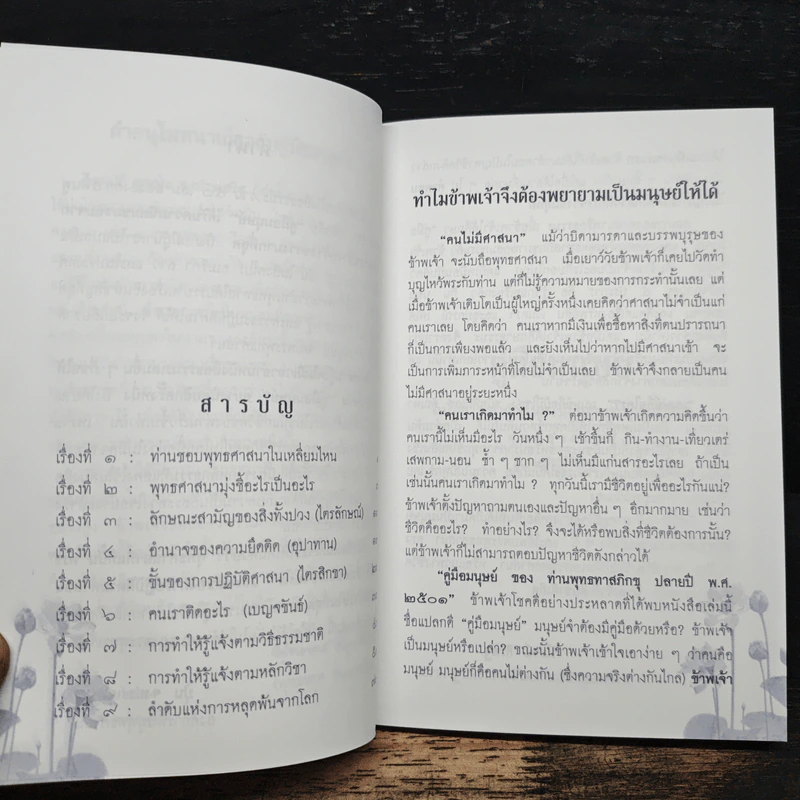 สารบัญ
เรื่องที่ ๑ : ท่านชอบพุทธศาสนาในเหลี่ยมไหน
เรื่องที่ ๒ : พุทธศาสนามุ่งชี้อะไรเป็นอะไร
เรื่องที่ ๓ : ลักษณะสามัญของสิ่งทั้งปวง (ไตรลักษณ์)
เรื่องที่ ๔ : อำนาจของความยึดติด (อุปาทาน)
เรื่องที่ ๕ : ขั้นของการปฏิบัติศาสนา (ไตรสิกขา)
เรื่องที่ ๖ : คนเราติดอะไร (เบญจขันธ์)
เรื่องที่ ๗ : การทำให้รู้แจ้งตามวิธีธรรมชาติ
เรื่องที่ ๘ : การทำให้รู้แจ้งตามหลักวิชา
เรื่องที่ ๙ : ลำดับแห่งการหลุดพ้นจากโลก
ทำไมข้าพเจ้าจึงต้องพยายามเป็นมนุษย์ให้ได้
"คนไม่มีศาสนา" แม้ว่าบิดามารดาและบรรพบุรุษของ
ข้าพเจ้า จะนับถือพุทธศาสนา เมื่อเยาว์วัยข้าพเจ้าก็เคยไปวัดทำ
บุญไหว้พระกับท่าน แต่ก็ไม่รู้ความหมายของการกระทำนั้นเลย แต่
เมื่อข้าพเจ้าเติบโตเป็นผู้ใหญ่ครั้งหนึ่งเคยคิดว่าศาสนาไม่จำเป็นแก่
คนเราเลย โดยคิดว่า คนเราหากมีเงินเพื่อซื้อหาสิ่งที่ตนปรารถนา
ก็เป็นการเพียงพอแล้ว และยังเห็นไปว่าหากไปมีศาสนาเข้า จะ
เป็นการเพิ่มภาระหน้าที่โดยไม่จำเป็นเลย ข้าพเจ้าจึงกลายเป็นคน
ไม่มีศาสนาอยู่ระยะหนึ่ง
"คนเราเกิดมาทำไม ?" ต่อมาข้าพเจ้าเกิดความคิดขึ้นว่า
คนเรานี้ไม่เห็นมีอะไร วันหนึ่ง ๆ เช้าขึ้นก็ กิน-ทำงาน-เที่ยวเตร่
เสพกาม-นอน ซ้ำ ๆ ซาก ๆ ไม่เห็นมีแก่นสารอะไรเลย ถ้าเป็น
เช่นนั้นคนเราเกิดมาทำไม ? ทุกวันนี้เรามีชีวิตอยู่เพื่ออะไรกันแน่?
ข้าพเจ้าตั้งปัญหาถามตนเองและปัญหาอื่น ๆ อีกมากมาย เช่นว่า
ชีวิตคืออะไร? ทำอย่างไร? จึงจะได้หรือพบสิ่งที่ชีวิตต้องการนั้น?
แต่ข้าพเจ้าก็ไม่สามารถตอบปัญหาชีวิตดังกล่าวได้
"คู่มือมนุษย์ ของ ท่านพุทธทาสภิกขุ ปลายปี พ.ศ.
๒๕๐๑" ข้าพเจ้าโชคดีอย่างประหลาดที่ได้พบหนังสือเล่มนี้
ชื่อแปลกดี "คู่มือมนุษย์" มนุษย์จำต้องมีคู่มือด้วยหรือ? ข้าพเจ้า
เป็นมนุษย์หรือเปล่า? ขณะนั้นข้าพเจ้าเข้าใจเอาง่าย ๆ ว่าคนคือ
มนุษย์ มนุษย์ก็คือคนไม่ต่างกัน (ซึ่งความจริงต่างกันไกล) ข้าพเจ้า